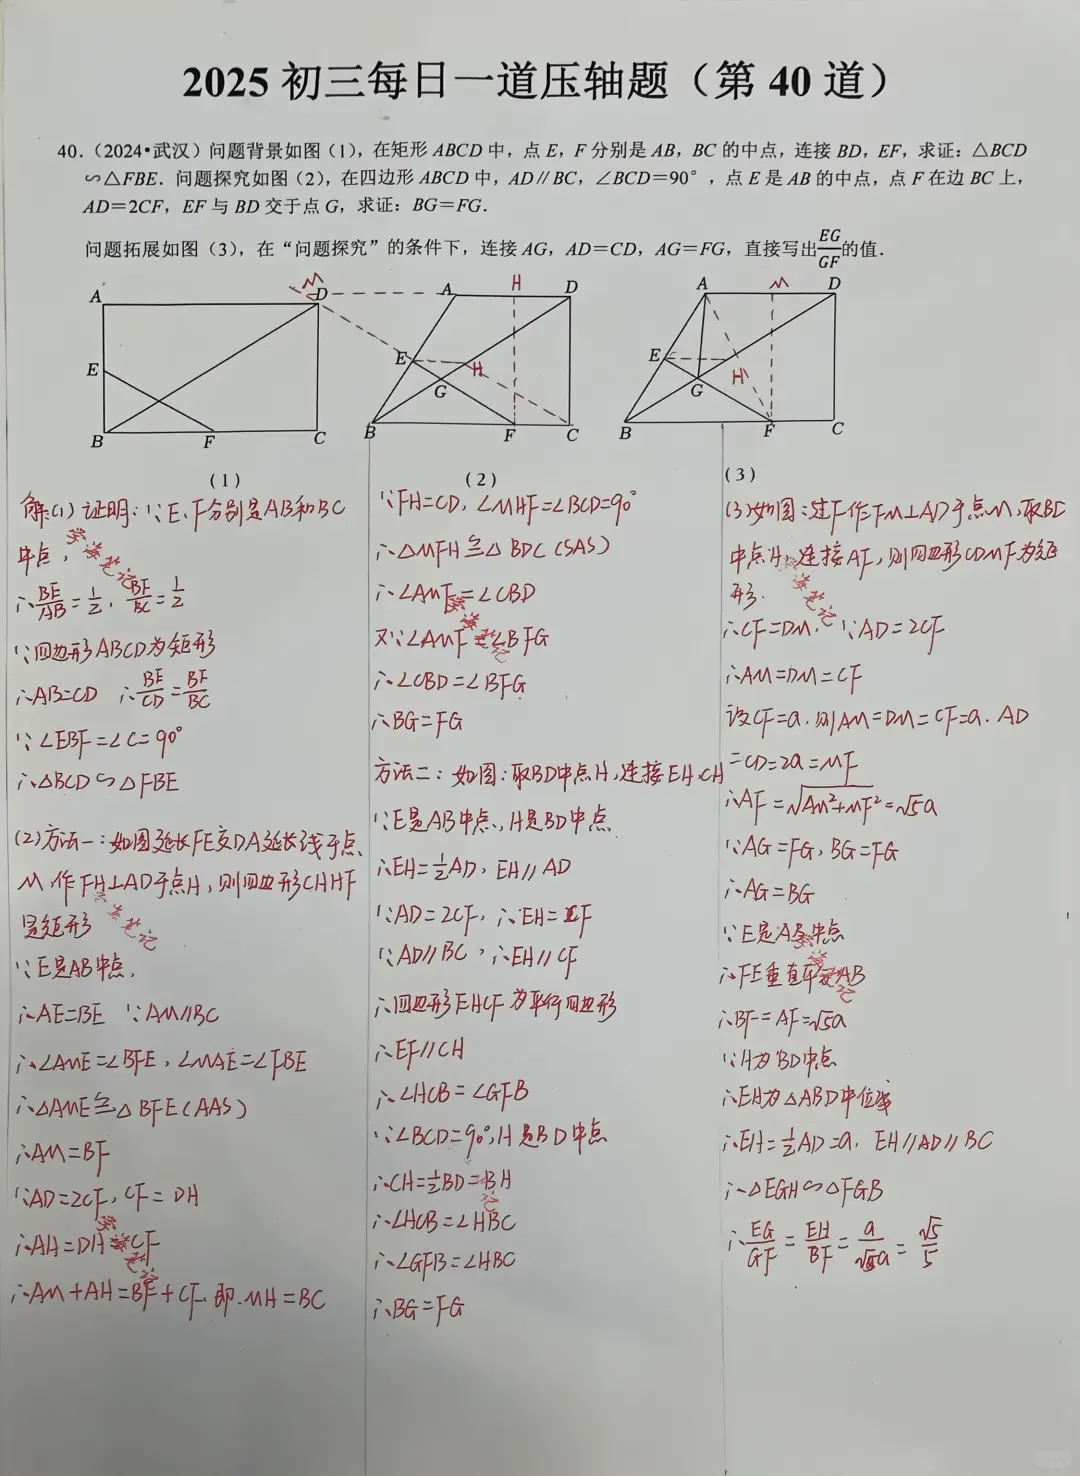 2025 初三每日一道压轴题（第 40 道）
40.（2024•武汉）问题背景如图（1），在矩形 ABCD 中，点 E，F 分别是 AB，BC 的中点，连接 BD，EF，求证：△BCD
∽△FBE．问题探究如图（2），在四边形 ABCD 中，AD∥BC，∠BCD=90°，点 E 是 AB 的中点，点 F 在边 BC 上，
AD=2CF，EF 与 BD 交于点 G，求证：BG=FG．
问题拓展如图（3），在“问题探究”的条件下，连接 AG，AD=CD，AG=FG，直接写出EG/GF的值．
A D E B F C
M D A H D E H G B F C
A M D E H G B F C
（1）
（2）
（3）
解：(1) 证明：∵E、F分别是AB和BC
中点，
∴BE/AB=1/2，BF/BC=1/2
∵四边形ABCD为矩形
∴AB=CD ∴BE/CD=BF/BC
∵∠EBF=∠C=90°
∴△BCD∽△FBE
(2) 方法一：如图延长FE交DA延长线于点
M，作FH⊥AD于点H，则四边形CHHF
是矩形
∵E是AB中点，
∴AE=BE ∵AM∥BC
∴∠AME=∠BFE，∠MAE=∠FBE
∴△AME≌△BFE(AAS)
∴AM=BF
∵AD=2CF，CF=DH
∴AH=DH=CF
∴AM+AH=BF+CF，即MH=BC
∵FH=CD，∠MHF=∠BCD=90°
∴△MFH≌△BDC(SAS)
∴∠AMF=∠CBD
又∵∠AMF=∠BFG
∴∠CBD=∠BFG
∴BG=FG
方法二：如图：取BD中点H，连接EH、CH
∵E是AB中点，H是BD中点
∴EH=1/2AD，EH∥AD
∵AD=2CF，∴EH=CF
∵AD∥BC，∴EH∥CF
∴四边形EHCF为平行四边形
∴EF∥CH
∴∠HCB=∠GFB
∵∠BCD=90°，H是BD中点
∴CH=1/2BD=BH
∴∠HCB=∠HBC
∴∠GFB=∠HBC
∴BG=FG
(3) 如图：过F作FM⊥AD于点M，取BD
中点H，连接AF，则四边形CDMF为矩
形．
∴CF=DM．∵AD=2CF
∴AM=DM=CF
设CF=a．则AM=DM=CF=a．AD
=CD=2a=MF
∴AF=√AM²+MF²=√5a
∵AG=FG，BG=FG
∴AG=BG
∵E是AB中点
∴FE垂直平分AB
∴BF=AF=√5a
∵H为BD中点
∴EH为△ABD中位线
∴EH=1/2AD=a．EH∥AD∥BC
∴△EGH∽△FGB
∴EG/GF=EH/BF=a/√5a=√5/5
学海笔记
学海笔记
学海笔记
学海笔记
学海笔记
学海笔记